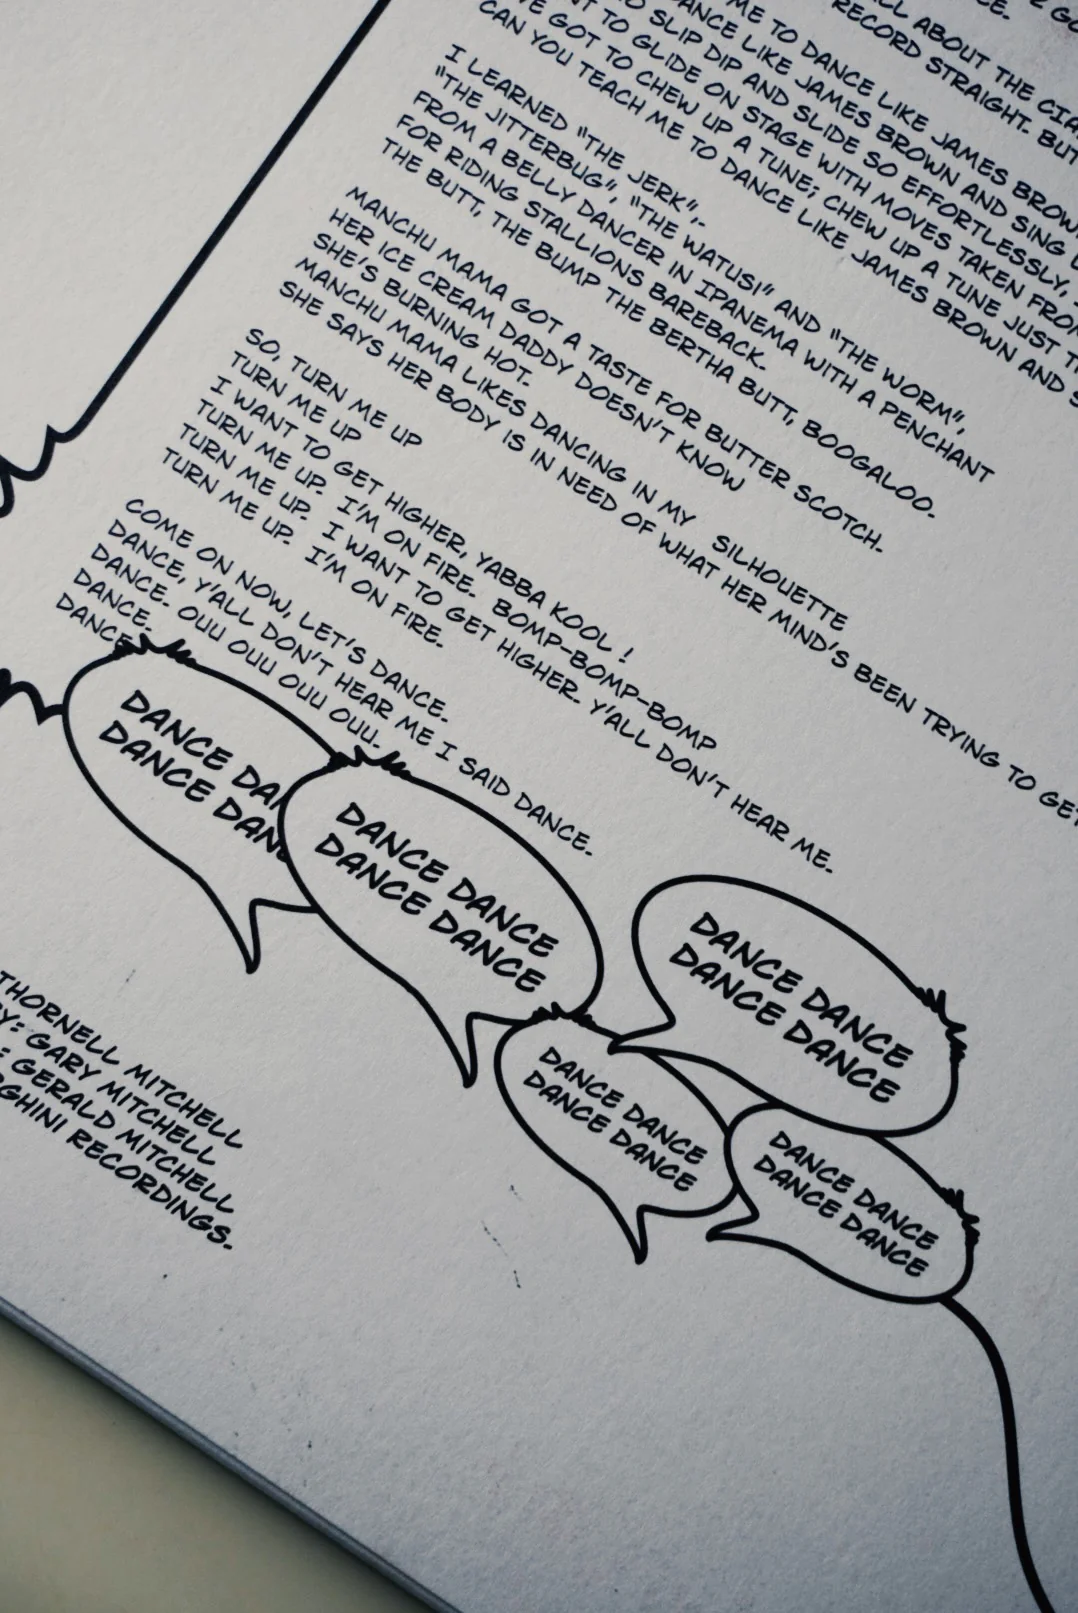 ALL ABOUT THE
RECORD STRAIGHT. BUT
ME TO DANCE LIKE JAMES BROWN
DANCE LIKE JAMES BROWN AND SING
SLIP DIP AND SLIDE SO EFFORTLESSLY,
TO GLIDE ON STAGE WITH MOVES TAKEN FROM
GOT TO CHEW UP A TUNE; CHEW UP A TUNE JUST
CAN YOU TEACH ME TO DANCE LIKE JAMES BROWN AND
I LEARNED "THE JERK",.
"THE JITTERBUG", "THE WATUSI" AND "THE WORM",
FROM A BELLY DANCER IN IPANEMA WITH A PENCHANT
FOR RIDING STALLIONS BAREBACK.
THE BUTT, THE BUMP THE BERTHA BUTT, BOOGALOO.
MANCHU MAMA GOT A TASTE FOR BUTTER SCOTCH.
HER ICE CREAM DADDY DOESN'T KNOW
SHE'S BURNING HOT.
MANCHU MAMA LIKES DANCING IN MY SILHOUETTE
SHE SAYS HER BODY IS IN NEED OF WHAT HER MIND'S BEEN TRYING TO GET
SO, TURN ME UP
TURN ME UP
I WANT TO GET HIGHER, YABBA KOOL !
TURN ME UP. I'M ON FIRE. BOMP-BOMP-BOMP
TURN ME UP. I WANT TO GET HIGHER. Y'ALL DON'T HEAR ME.
TURN ME UP. I'M ON FIRE.
COME ON NOW, LET'S DANCE.
DANCE, Y'ALL DON'T HEAR ME I SAID DANCE.
DANCE. OUU OUU OUU OUU OUU.
DANCE.
DANCE
DANCE
DANCE DANCE
DANCE DANCE
DANCE DANCE
DANCE DANCE
DANCE DANCE
DANCE DANCE
DANCE DANCE
DANCE DANCE
DANCE DANCE
THORNELL MITCHELL
GARY MITCHELL
: GERALD MITCHELL
RECORDINGS.